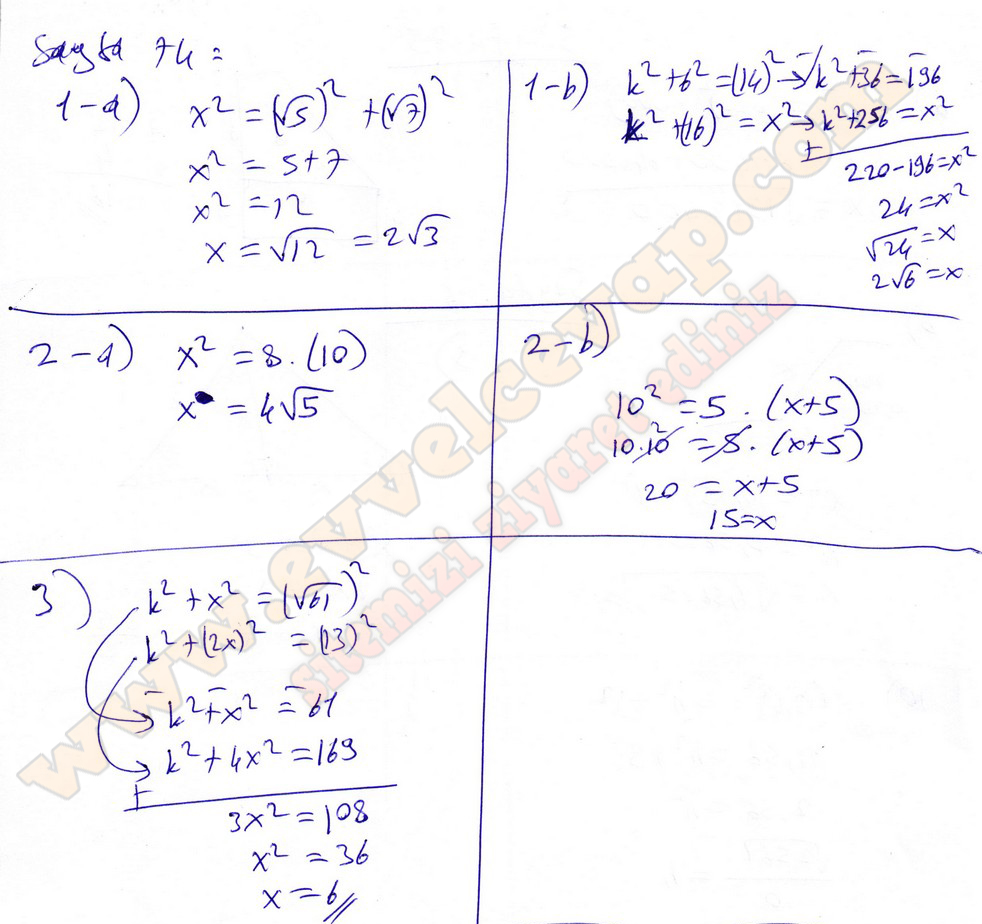 Sayfa 74:
1-a) x² = (√5)² + (√7)²
x² = 5+7
x² = 12
x = √12 = 2√3
1-b) k² + 6² = (14)² → k² + 36 = 196
k² + (16)² = x² → k² + 256 = x²
+
220 - 196 = x²
24 = x²
√24 = x
2√6 = x
2-a) x² = 8 . (10)
x = 4√5
2-b)
10² = 5 . (x+5)
10.10² = 5 . (x+5)
20 = x+5
15 = x
3) k² + x² = (√61)²
k² + (2x)² = (13)²
- k² + - x² = - 61
k² + 4x² = 169
+
3x² = 108
x² = 36
x = 6 //
www.evvelcevap.com
sitemizi ziyaret ediniz